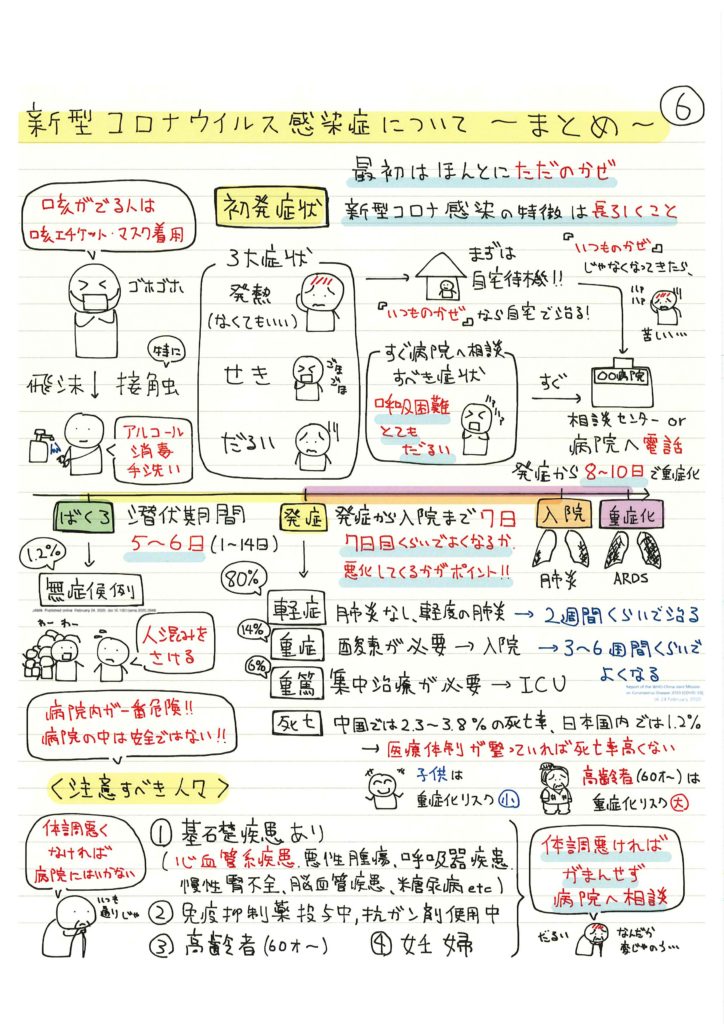 ⑥
新型コロナウイルス感染症について 〜まとめ〜
最初はほんとにただのかぜ
新型コロナ感染の特徴は長引くこと
咳がでる人は
咳エチケット・マスク着用
ゴホゴホ
特に
飛沫↓ 接触
アルコール
消毒
手洗い
初発症状
3大症状
発熱
(なくてもいい)
せき
ごほ
ごほ
だるい
まずは
自宅待機!!
『いつものかぜ』なら自宅で治る!
『いつものかぜ』
じゃなくなってきたら、
ハァ
ハァ
苦しい…
すぐ病院へ相談
すべき症状
呼吸困難
とても
だるい
すぐ
〇〇病院
相談センター or
病院へ電話
発症から8〜10日で重症化
ばくろ
潜伏期間
5〜6日(1〜14日)
発症
発症から入院まで7日
7日目くらいでよくなるか、
悪化してくるかがポイント!!
入院
重症化
肺炎
ARDS
1.2%
無症候例
JAMA. Published online February 24, 2020. doi:10.1001/jama.2020.2648
わー わー
人混みを
さける
80%
軽症
肺炎なし、軽度の肺炎 → 2週間くらいで治る
14%
重症
酸素が必要 → 入院 → 3〜6週間くらいで
よくなる
6%
重篤
集中治療が必要 → ICU
Report of the WHO-China Joint Mission
on Coronavirus Disease 2019 (COVID-19)
16-24 February 2020
死亡
中国では2.3〜3.8%の死亡率、日本国内では1.2%
→ 医療体制が整っていれば死亡率高くない
病院内が一番危険!!
病院の中は安全ではない!!
子供は
重症化リスク小
高齢者(60才〜)は
重症化リスク大
<注意すべき人々>
体調悪く
なければ
病院にはいかない
いつも
通りじゃ
① 基礎疾患あり
(心血管系疾患、悪性腫瘍、呼吸器疾患、
慢性腎不全、脳血管疾患、糖尿病 etc)
② 免疫抑制薬投与中、抗ガン剤使用中
③ 高齢者(60才〜) ④ 妊婦
体調悪ければ
がまんせず
病院へ相談
だるい
なんだか
変じゃのう…